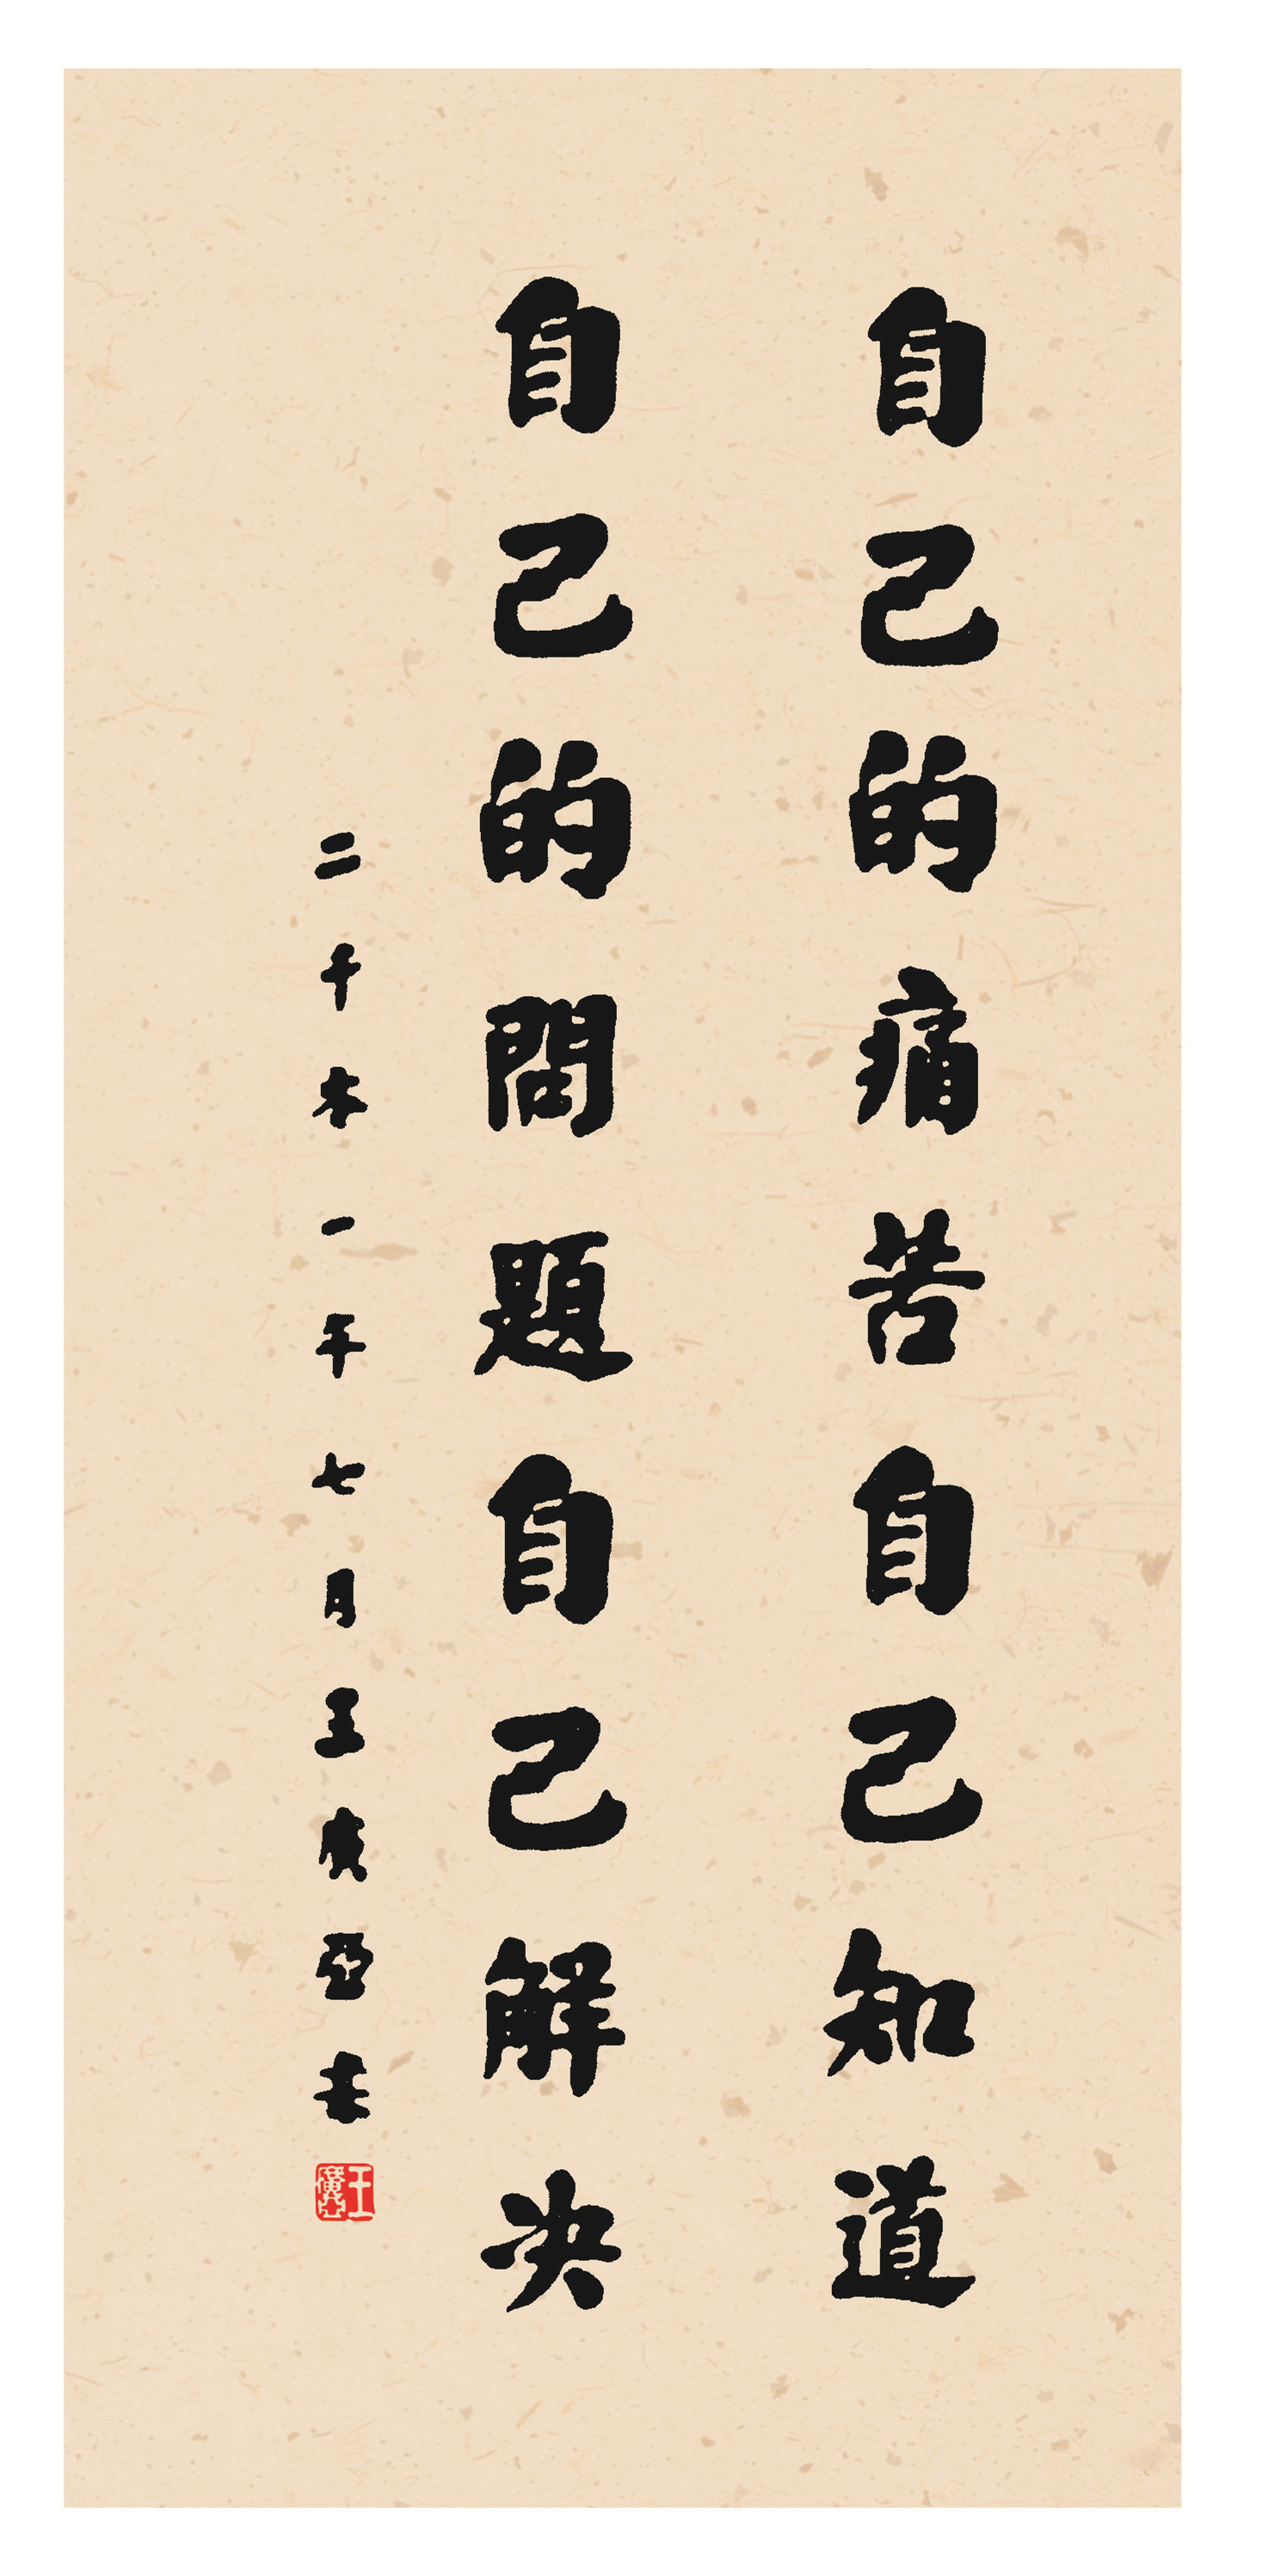 自己的痛苦自己知道
自己的問題自己解决
二千本一年七月王廣亞書
王廣亞